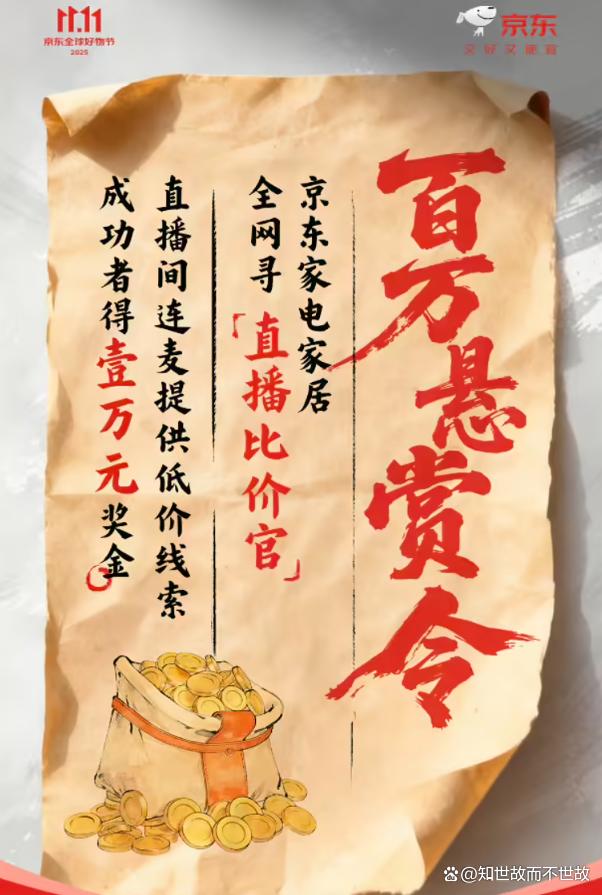 11.11
京东全球好物节
2025
京东
又好又便宜
百万悬赏令
京东家电家居
全网寻「直播比价官」
直播间连麦提供低价线索
成功者得壹万元奖金
@知世故而不世故